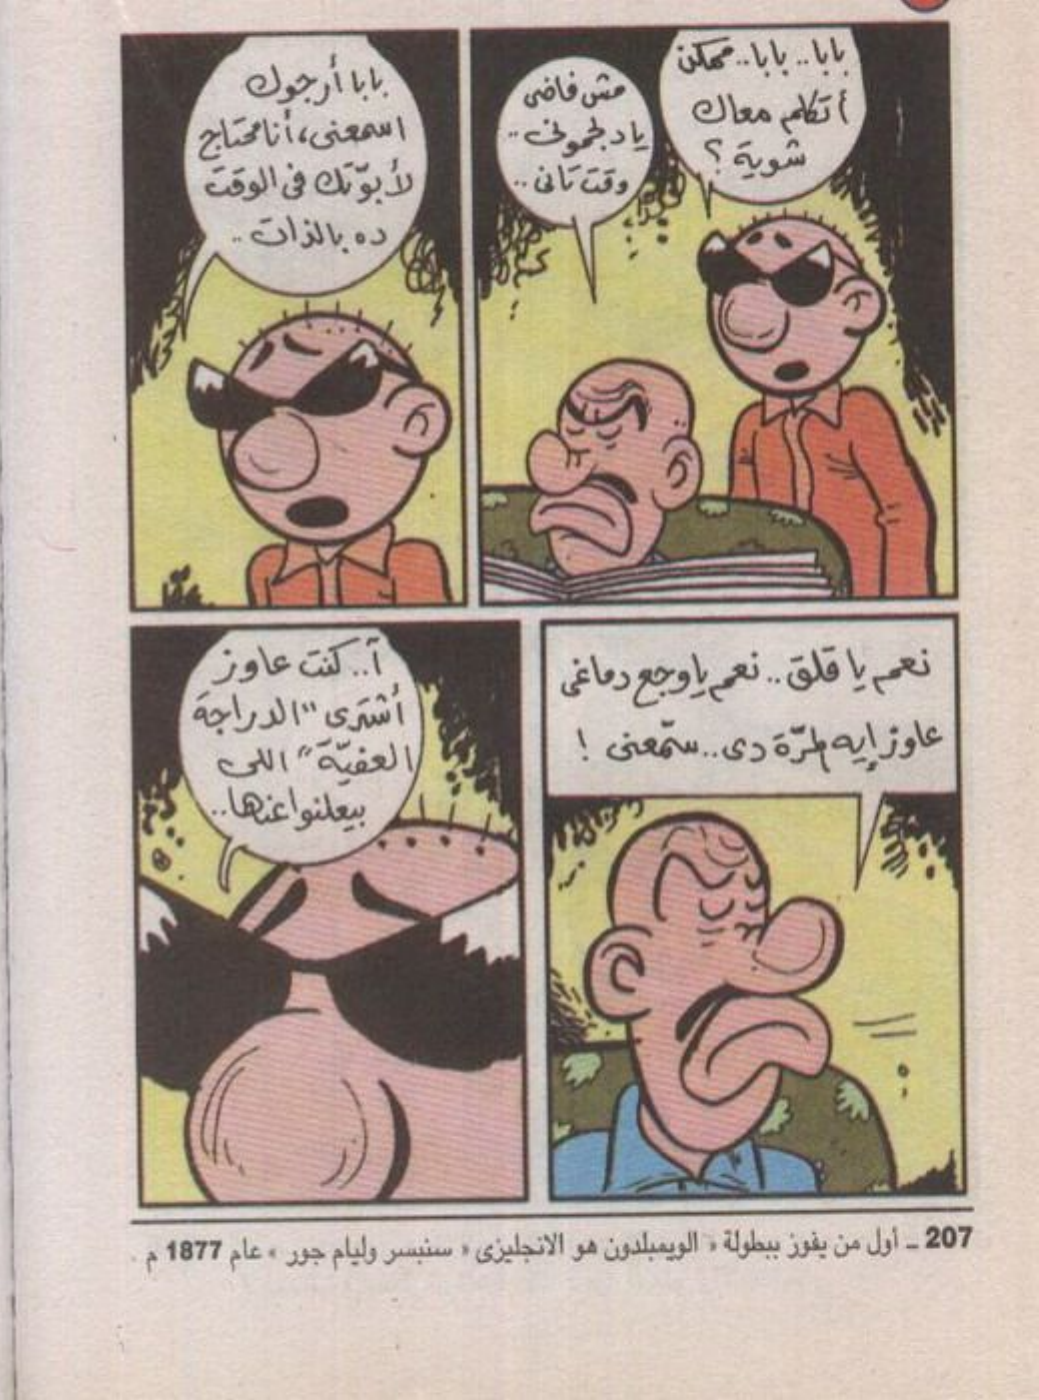 بابا.. بابا.. ممكن
أتكلم معاك
شوية ؟
مش فاضى
يا دلحمونى ..
وقت تانى ..
بابا أرجوك
اسمعنى، أنا محتاج
لأبوّتك فى الوقت
ده بالذات ..
نعم يا قلق.. نعم يا وجع دماغى
عاوز إيه المرّة دى.. سمّعنى !
آ.. كنت عاوز
أشترى "الدراجة
العفيّة" اللى
بيعلنوا عنها..
207 ـ أول من يفوز ببطولة « الويمبلدون هو الانجليزى « سنبسر وليام جور » عام 1877 م .